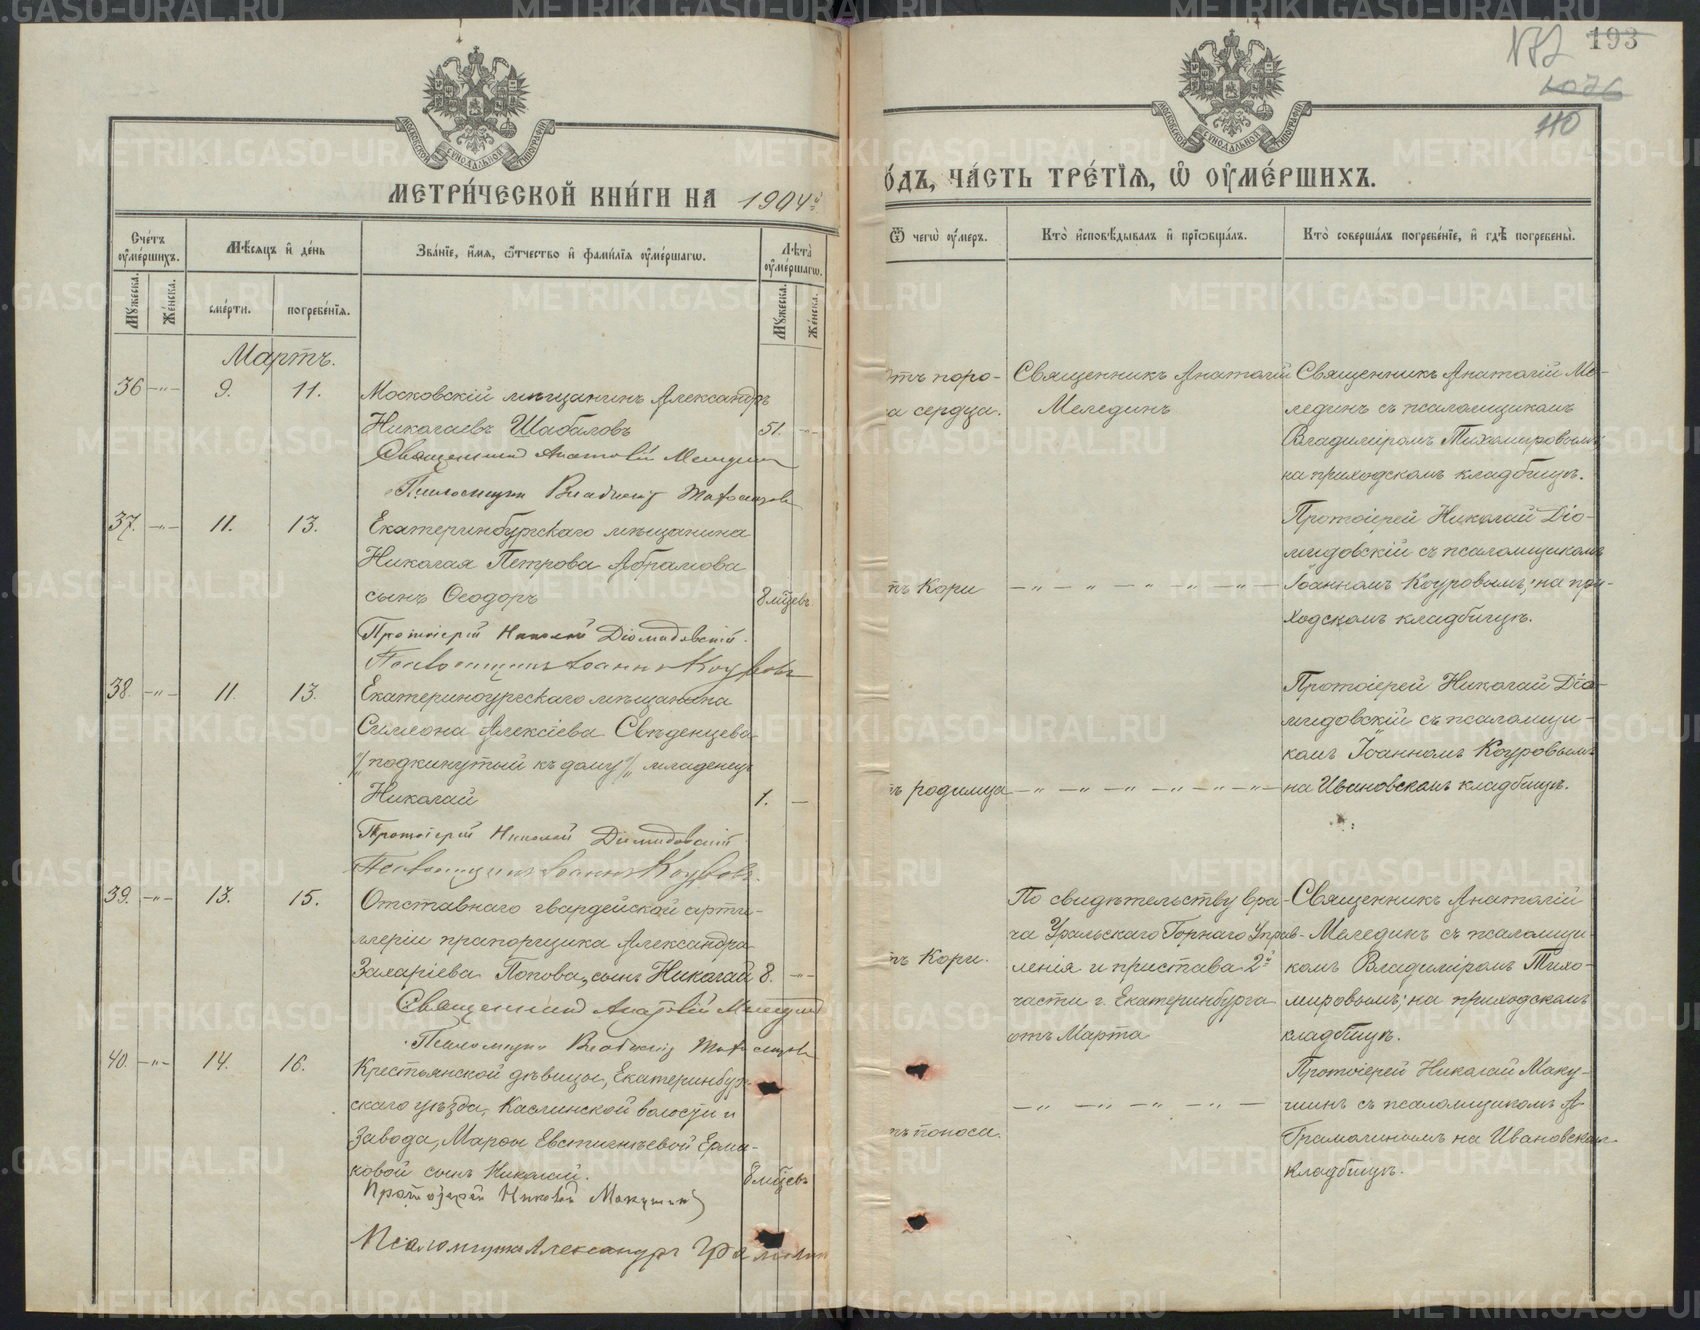 193
1026
110
МОСКОВСКОЙ СѴНОДАЛЬНОЙ ТИПОГРАФІИ
МОСКОВСКОЙ СѴНОДАЛЬНОЙ ТИПОГРАФІИ
МЕТРИ́ЧЕСКОЙ КНИ́ГИ НА 1904й
О́ДЪ, ЧА́СТЬ ТРЕ́ТІѦ, Ѽ ОУМЕ́РШИХЪ.
Сче́тъ оуме́ршихъ.
Мѣ́сяцъ и де́нь
Зва́ніе, и́мя, ѻ́тчество и фами́лія оуме́ршагѡ.
Лѣ́та оуме́ршагѡ.
Ѿ чегѡ̀ оу́меръ.
Кто̀ и҆сповѣ́дывалъ и҆ прїѡбща́лъ.
Кто̀ соверша́лъ погребе́ніе, и҆ гдѣ̀ погребены̀.
Мꙋжеска.
Же́нска.
сме́рти.
погребе́нїѧ.
Мꙋжеска.
Же́нска.
Мартъ.
36 —"— 9. 11. Московскій мѣщанинъ Александръ
Николаевъ Шабаловъ 51. —"—
Священникъ Анатолій Мелединъ
Псаломщикъ Владиміръ Тихомировъ
отъ поро-
ка сердца.
Священникъ Анатолій
Мелединъ
Священникъ Анатолій Ме-
лединъ съ псаломщикомъ
Владиміромъ Тихомировымъ
на приходскомъ кладбищѣ.
37. —"— 11. 13. Екатеринбургскаго мѣщанина
Николая Петрова Абрамова
сынъ Ѳеодоръ 8 мѣсцевъ
Протоіерей Николай Діомидовскій.
Псаломщикъ Іоаннъ Коуровъ
тъ Кори —"— "—"—"—"—
Протоіерей Николай Діо-
мидовскій съ псаломщикомъ
Іоанномъ Коуровымъ; на при-
ходскомъ кладбищѣ.
38. —"— 11. 13. Екатеринбургскаго мѣщанина
Симеона Алексіева Свѣденцева
/"подкинутый къ дому"/ младенецъ
Николай 1. —
Протоіерей Николай Діомидовскій
Псаломщикъ Іоаннъ Коуровъ.
тъ родимца —"—"—"—"—"—"—
Протоіерей Николай Діо-
мидовскій съ псаломщи-
комъ Іоанномъ Коуровымъ
на Ивановскомъ кладбищѣ.
39. —"— 13. 15. Отставнаго гвардейской арти-
ллеріи прапорщика Александра
Захаріева Попова, сынъ Николай 8. —"—
Священникъ Анатолій Мелединъ
Псаломщикъ Владиміръ Тихомировъ
тъ Кори.
По свидѣтельству вра-
ча Уральскаго Горнаго Управ-
ленія и пристава 2й
части г. Екатеринбурга
отъ Марта
Священникъ Анатолій
Мелединъ съ псаломщи-
комъ Владиміромъ Тихо-
мировымъ; на приходскомъ
кладбищѣ.
40. —"— 14. 16. Крестьянской дѣвицы, Екатеринбург-
скаго уѣзда, Каслинской волости и
завода, Марѳы Евстигнѣевой Ерма-
ковой сынъ Николай. 8 мѣсцевъ
Протоіерей Николай Макушинъ
Псаломщикъ Александръ Грамолинъ
тъ поноса.
—"—"—"—"—
Протоіерей Николай Маку-
шинъ съ псаломщикомъ А.
Грамолинымъ на Ивановскомъ
кладбищѣ.
METRIKI.GASO-URAL.RU